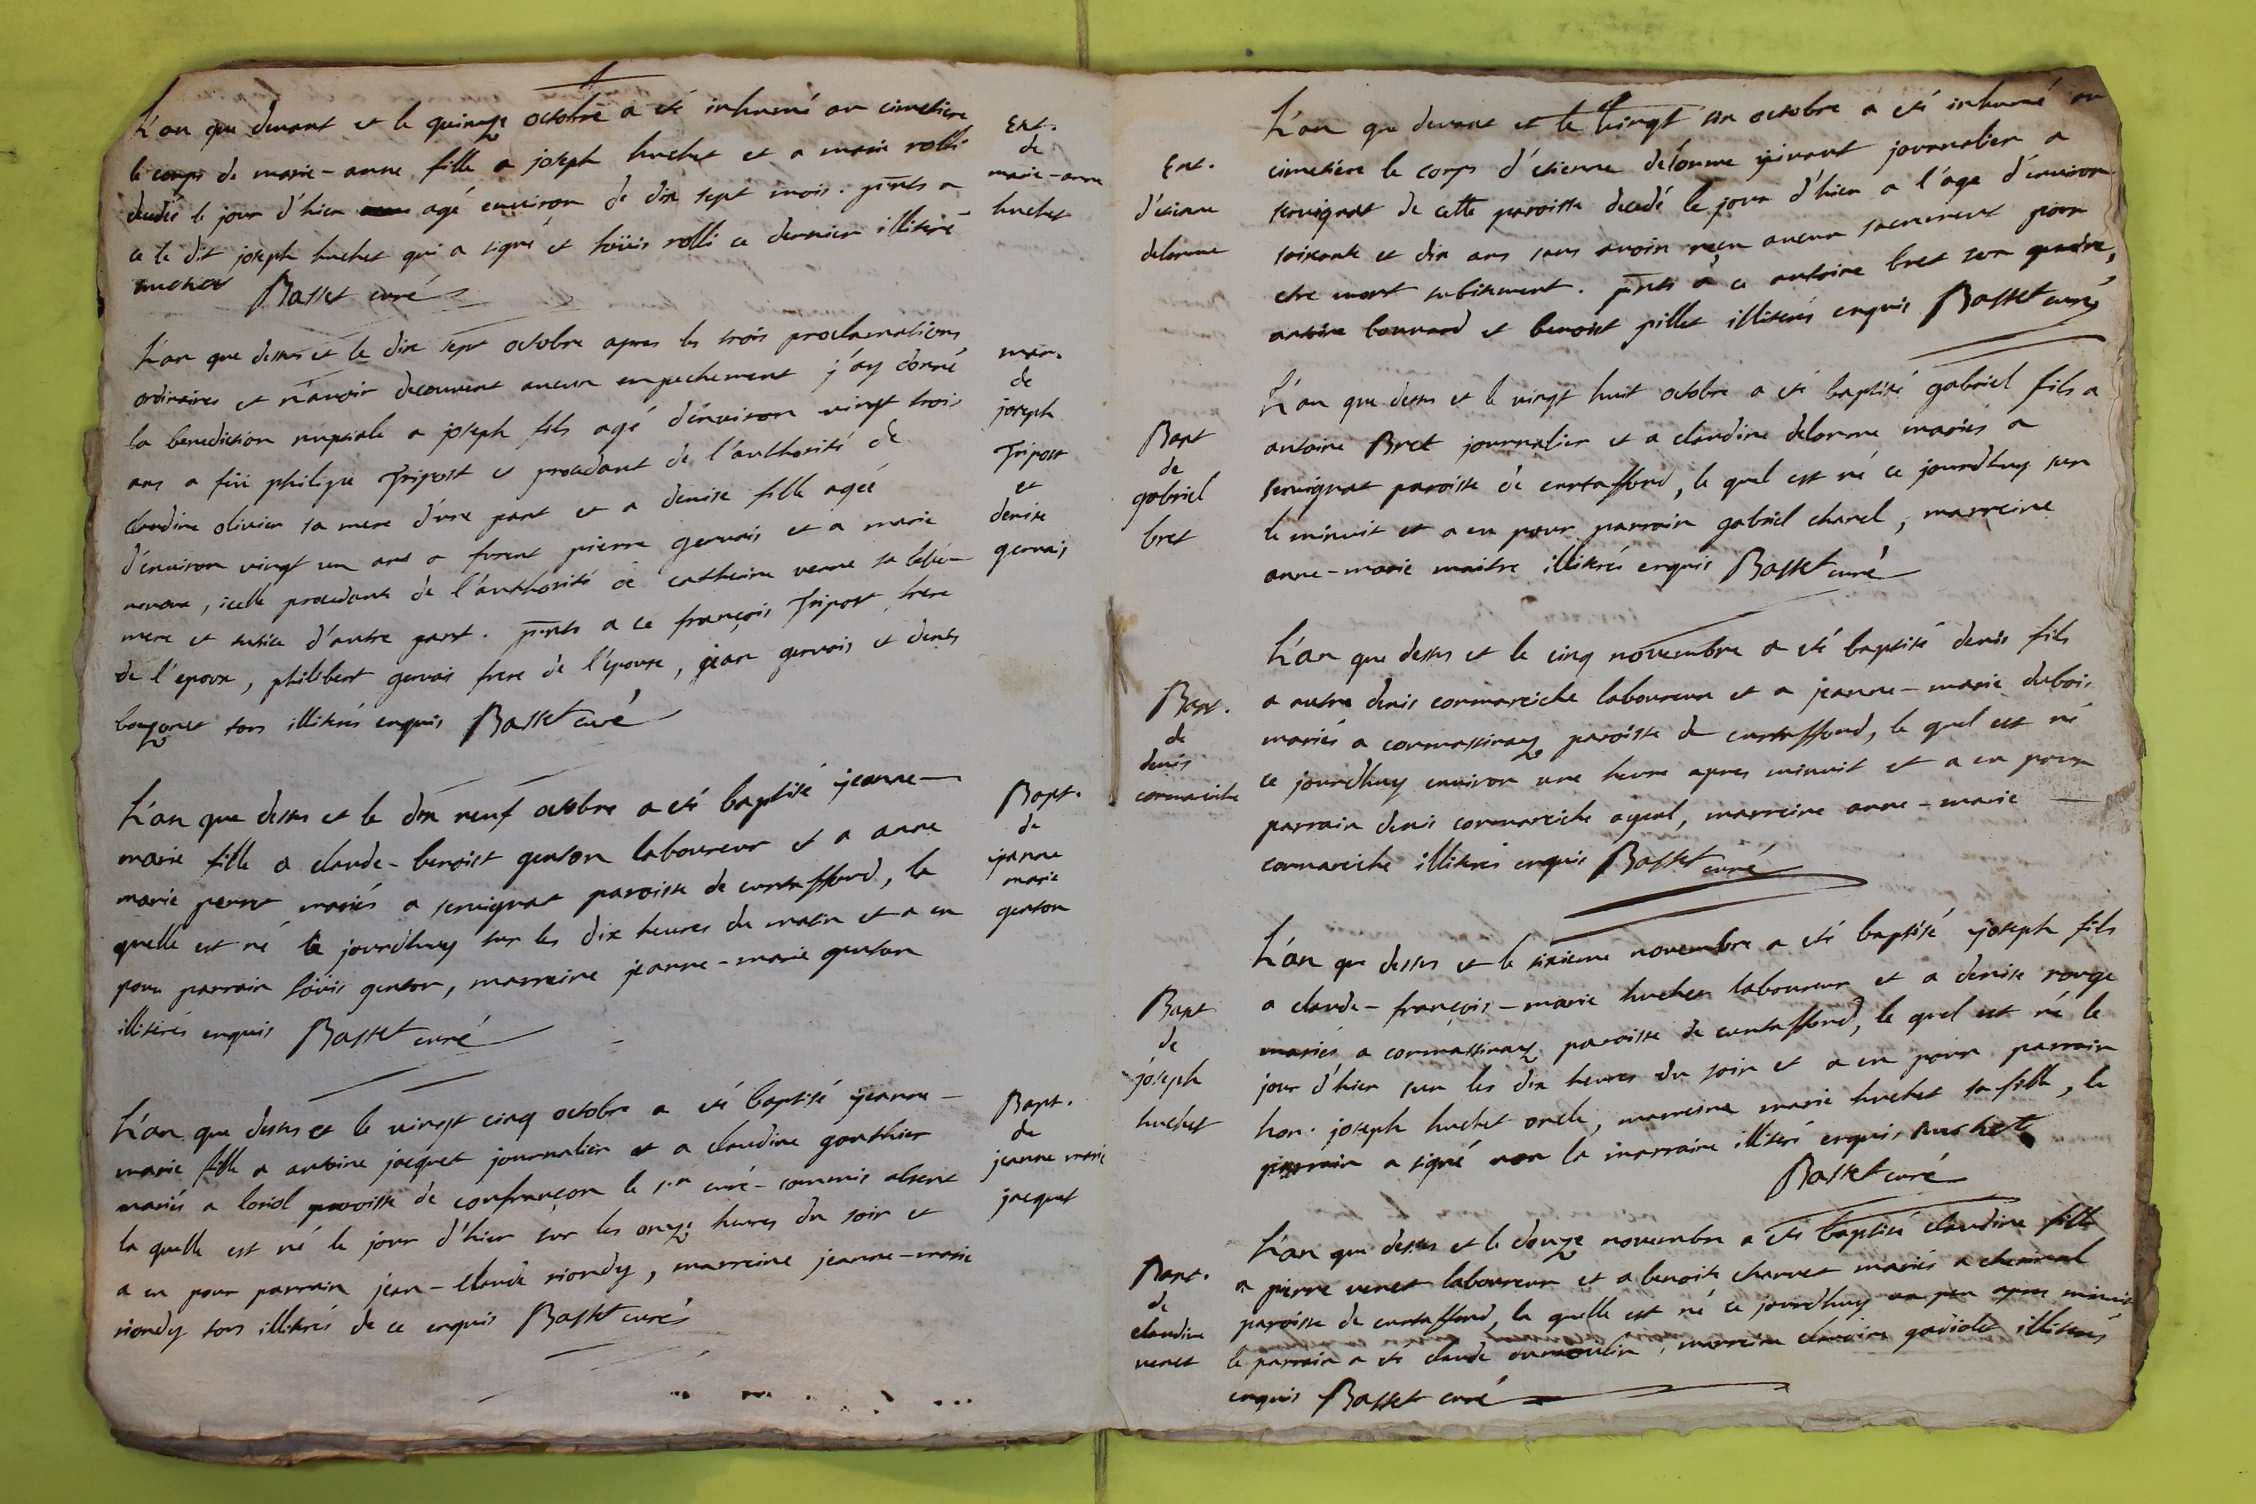 L'an que devant et le quinze octobre a eté inhumé au cimetiere
le corps de marie-anne fille a joseph huchet et a marie rolli
decedée le jour d'hier agé environ de dix sept mois. pnts a
ce le dit joseph huchet qui a signé et loüis rolli ce dernier illiteré
huchet Basset curé
Ent.
de
marie-anne
huchet
L'an que dessus et le dix sept octobre apres les trois proclamations
ordinaires et n'avoir decouvert aucun empechement j'ay donné
la benediction nuptiale a joseph fils agé d'environ vingt trois
ans a feu philipe Tripost et procedant de l'authorité de
claudine olivier sa mere d'une part et a denise fille agée
d'environ vingt un ans a furent pierre gervais et a marie
, icelle procedante de l'authorité de catherine venne sa
mere et tutice d'autre part. pnts a ce françois Tripost frere
de l'epoux, philibert gervais frere de l'épouse, jean gervais et denis
bouzonet tous illiterés enquis Basset curé
mar.
de
joseph
Tripost
et
denise
gervais
L'an que dessus et le dix neuf octobre a eté baptisé jeanne-
marie fille a claude-benoist genton laboureur et a anne
marie perret mariés a servignat paroisse de curtaffond, la
quelle est né le jourdhuy sur les dix heures du matin et a eu
pour parrain loüis genton, marreine jeanne-marie genton
illiterés enquis Basset curé
Bapt.
de
jeanne
marie
genton
L'an que dessus et le vingt cinq octobre a eté baptisé jeanne-
marie fille a antoine jacquet journalier et a claudine gonthier
mariés a loriol paroisse de confrançon le sr curé-commis absent
la quelle est né le jour d'hier sur les onze heures du soir et
a eu pour parrain jean-claude riondy, marreine jeanne-marie
riondy tous illiterés de ce enquis Basset curé
Bapt.
de
jeanne marie
jacquet
L'an que devant et le vingt six octobre a eté inhumé au
cimetiere le corps d'étienne delorme vivant journalier a
servignat de cette paroisse decedé le jour d'hier a l'âge d'environ
soixante et dix ans sans avoir reçu aucun sacrement pour
etre mort subitement. pnts a ce antoine bret son gendre,
antoine bouvard et benoist pillet illiterés enquis Basset curé
Ent.
d'étienne
delorme
L'an que dessus et le vingt huit octobre a eté baptisé gabriel fils a
antoine Bret journalier et a claudine delorme mariés a
servignat paroisse de curtaffond, le quel est né ce jourdhuy sur
le minuit et a eu pour parrain gabriel charel, marreine
anne-marie maitre illiterés enquis Basset curé
Bapt
de
gabriel
bret
L'an que dessus et le cinq novembre a eté baptisé denis fils
a autre denis cormareiche laboureur et a jeanne-marie dubois
mariés a cormassinaz paroisse de curtaffond, le quel est né
ce jourdhuy environ une heure apres minuit et a eu pour
parrain denis cormareiche ayeul, marreine anne-marie
cormareiche illiterés enquis Basset curé
Bapt.
de
denis
cormareiche
L'an que dessus et le sixieme novembre a eté baptisé joseph fils
a claude-françois-marie huchet laboureur et a denise rouge
mariés a cormassinaz paroisse de curtaffond, le quel est né le
jour d'hier sur les dix heures du soir et a eu pour parrain
hon. joseph huchet oncle, marreine marie huchet sa fille, le
parrain a signé non la marraine illiteré enquis huchet
Basset curé
Bapt
de
joseph
huchet
L'an que dessus et le douze novembre a eté baptisé claudine fille
a pierre venet laboureur et a benoite charvet mariés a
paroisse de curtaffond, la quelle est né ce jourdhuy un peu apres minuit
le parrain a eté claude dumoulin, marreine claudine gadiolet illiterés
enquis Basset curé
Bapt.
de
claudine
venet